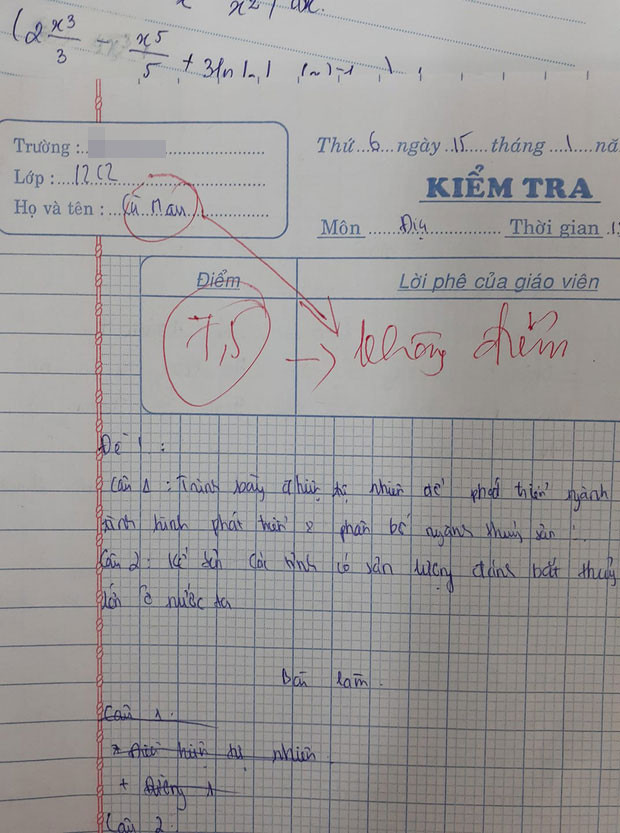 (2 x³/3 - x⁵/5 + 3ln
Trường :
Lớp : 12C2
Họ và tên : Cù Mau
Thứ 6 ngày 15 tháng 1 nă
KIỂM TRA
Môn Địa Thời gian 1
Điểm
Lời phê của giáo viên
7,5 → không điểm
Đề 1 :
Câu 1 : Trình bày điều kiện tự nhiên để phát triển ngành
tình hình phát triển & phân bố ngành thuỷ sản
Câu 2 : Kể tên các tỉnh có sản lượng đánh bắt thuỷ
lớn ở nước ta
Bài làm
Câu 1.
* Điều kiện tự nhiên
+ Đường 1
Câu 2